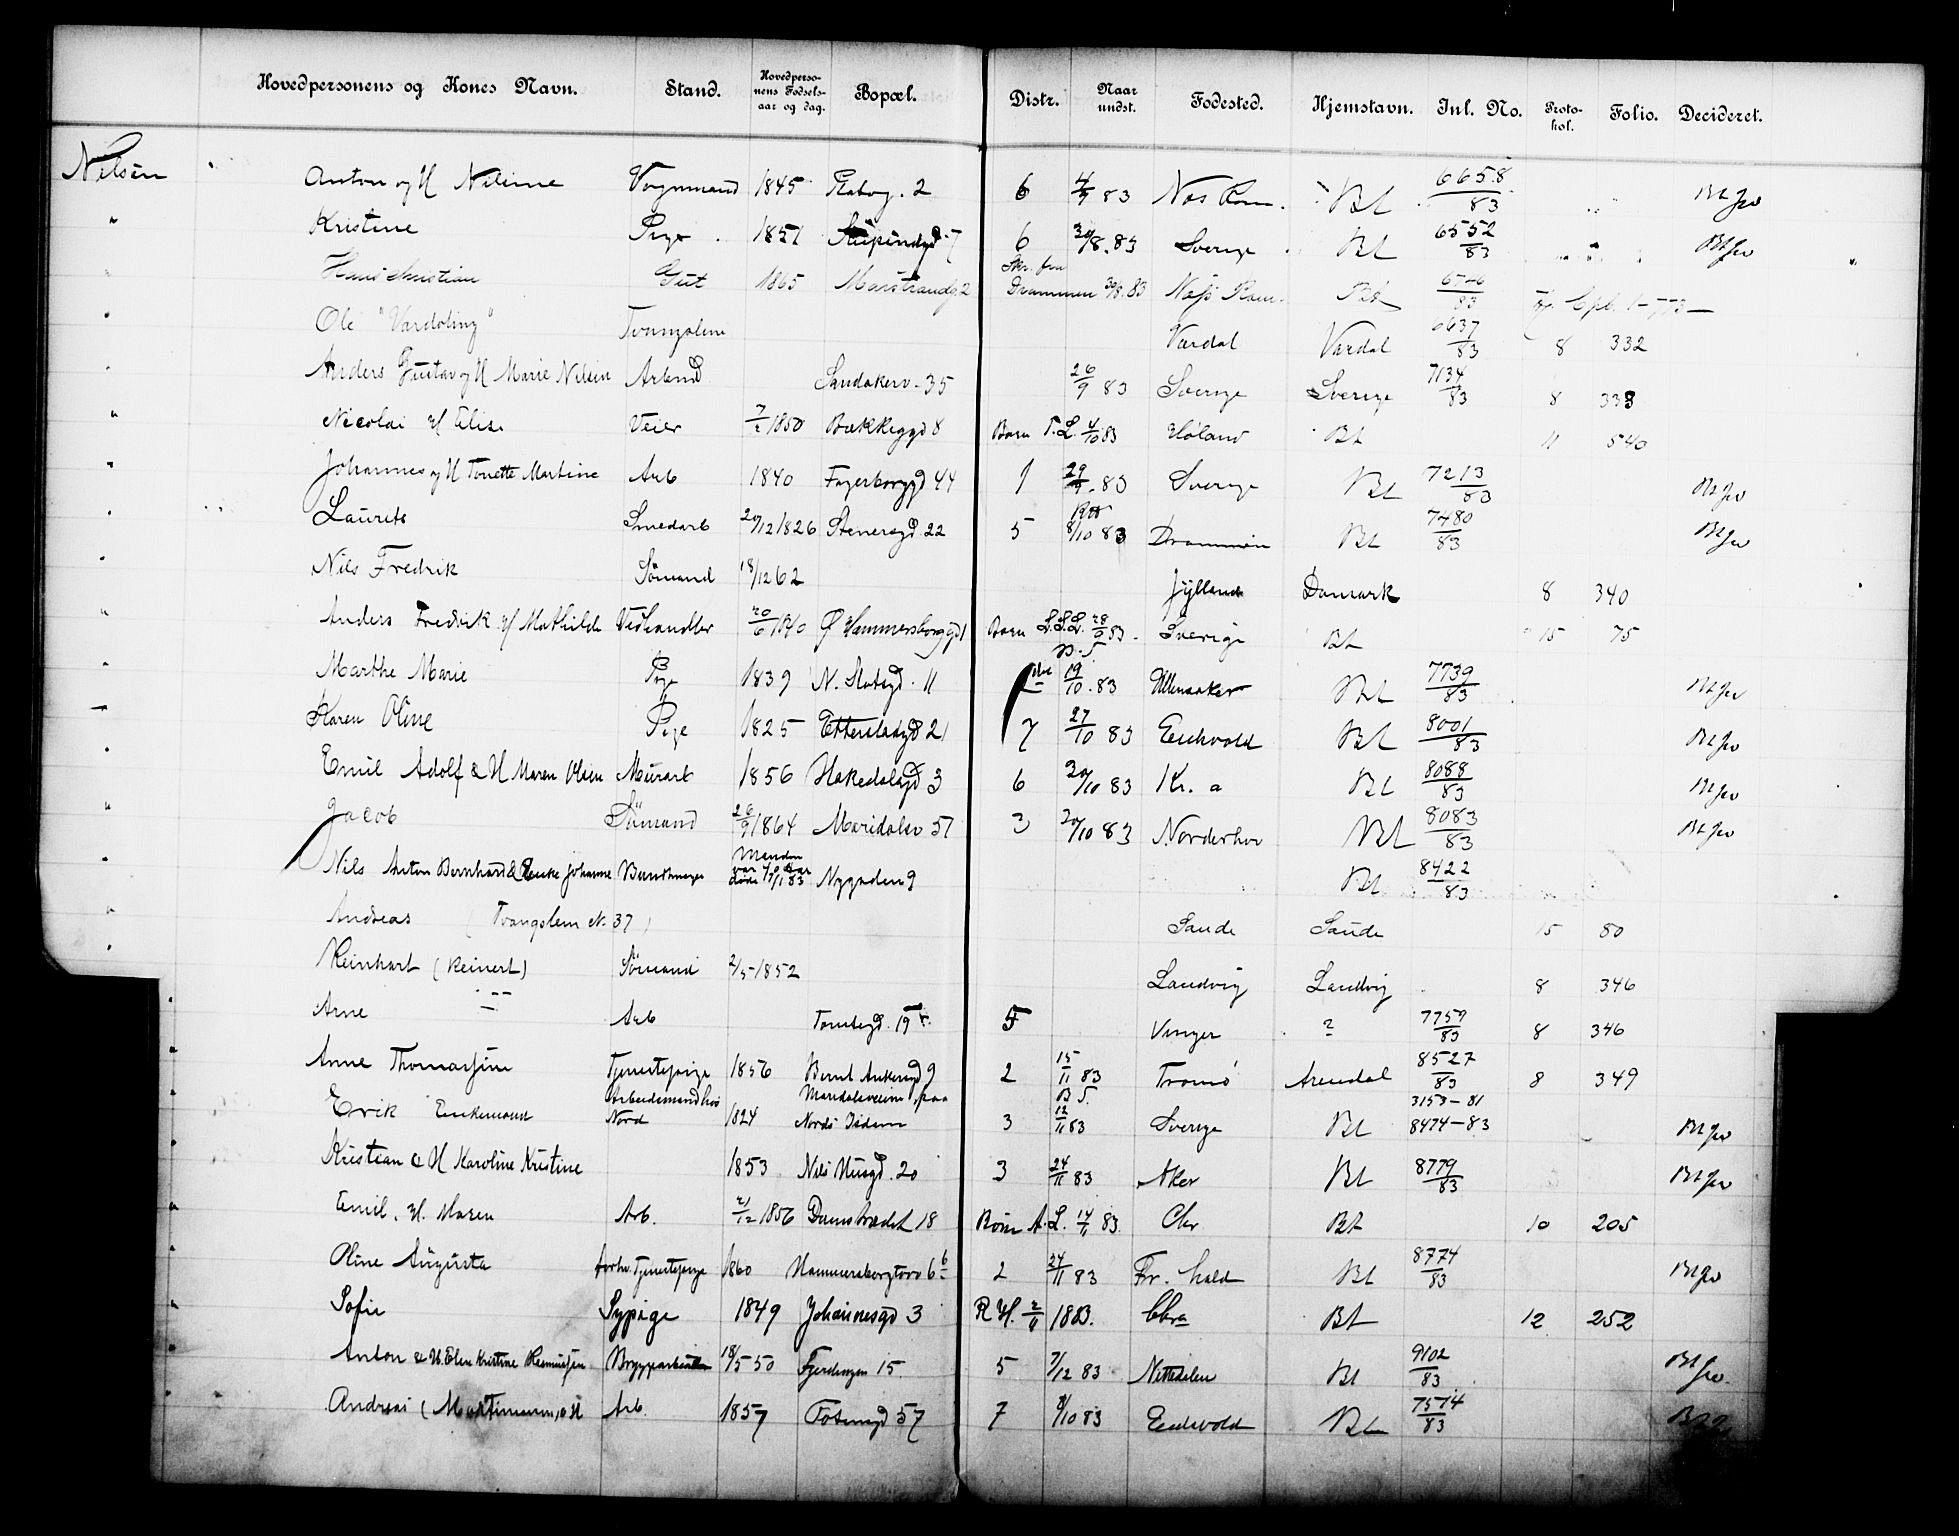 Hovedpersonens og Kones Navn. Stand. Hovedperso-nens Fødsels-aar og dag. Bopæl. Distr. Naar undst. Fødested. Hjemstavn. Inl. No. Proto-kol. Folio. Decideret.
Nilsen Anton og H Nilsine Vognmand 1845 2 6 4/9 83 Næs Rom. Bt 6658/83 Bt Jw
" Kristine Pige 1851 7 6 30/8.83 Sverige Bt 6552/83 Bt Jw
" Hans Kristian Gut 1865 Marstrandg 2 Skr. fra Drammen 30/8.83 Næss Rom. 83
" Ole "Vardøling" Tvangslem Vardal Vardal 6637/83 8 332
" Anders Gustav og H Marie Nilsen Arbmd Sandakerv. 35 26/9 83 Sverige Sverige 7134/83 8 333
" Nicolai H Elise Veier 1850 Bakkegd 8 Børn T.L. 4/10 83 Høland Bt 11 540
" Johannes og H Tonette Martine Arb 1840 Fagerborggd 44 1 29/9.83 Sverige Bt 7213/83 Bt Jw
Laurits Smedarb 20/12 1826 Stenersgd. 22 5 8/10 83 Drammen Bt 7480/83 Bt Jw
" Nils Fredrik Sømand 18/12 62 Jylland Danmark 8 340
" Anders Fredrik H Mathilde Vedhandler 20/6 1840 Ø Hammersborggd 1 Børn L.S.L. 28/9 83. Sverige Bt 15 75
" Marthe Marie Pige 1839 N. Slotsgd. 11 19/10.83 Ullensaker Bt 7739/83 Bt Jw
" Karen Oline Pige 1825 Etterstadgd 21 7 27/10 83 Eidsvold Bt 8001/83 Bt Jw
" Emil Adolf & H Maren Olsen Murarb 1856 Hakedalsgd 3 6 30/10 83 Kr. a Bt 8088/83 Bt Jw
" Jacob Sømand 26/9 1864 Maridalsv 51 3 30/10 83 Norderhov Bt 8083/83 Bt Jw
" Nils Anton Bernhard & Enke Johanne Buntmager Manden Nygaden 9 Bt 8422/83
" Andreas (Tvangslem No. 37) Sande Sande 15 80
" Reinhart (Reinert) Sømand 2/5 1852 Landvig Landvig 8 346
" Arne Arb Tomtegd. 19 5 Vinger ? 7759/83 8 346
" Anne Thomassine Tjenestepige 1856 Bernt Ankersgd 9 2 15/11 83 Tromø Arendal 8527/83 8 349
" Erik Enkemand Arbeidsmand hos Nord 1824 Maridalsveien, paa Nords 3 12/11 83 Sverige Bt 3153-81 8474-83 Bt Jw
" Kristian & H Karoline Kristine 1853 Nils Husgd. 20 3 24/11 83 Aker Bt 8779/83 Bt Jw
" Emil. H. Maren Arb. 21/12 1856 Damstrædet 18 Børn A.L. 14/11 83. Chr Bt 10 205
" Oline Augusta forhv. Tjenestepige 1860 Hammersborgtorv 6 2 24/11 83 Fr. hald Bt 8774/83 Bt Jw
" Sofie Sypige 1849 Johannesgd 3 R.H. 2/11 1883. Chra Bt 12 252
" Anton & H. Elen Kristine Rasmussen Bryggarbeider 18/5 50 Fjerdingen 15. 5 7/12 83 Nittedalen Bt 9102/83 Bt Jw.
Andreas (Martinsen) & H Arb. 1857 Tøiengd 57 7 8/10 83 Eidsvold Bt 7574/83 Bt Jw